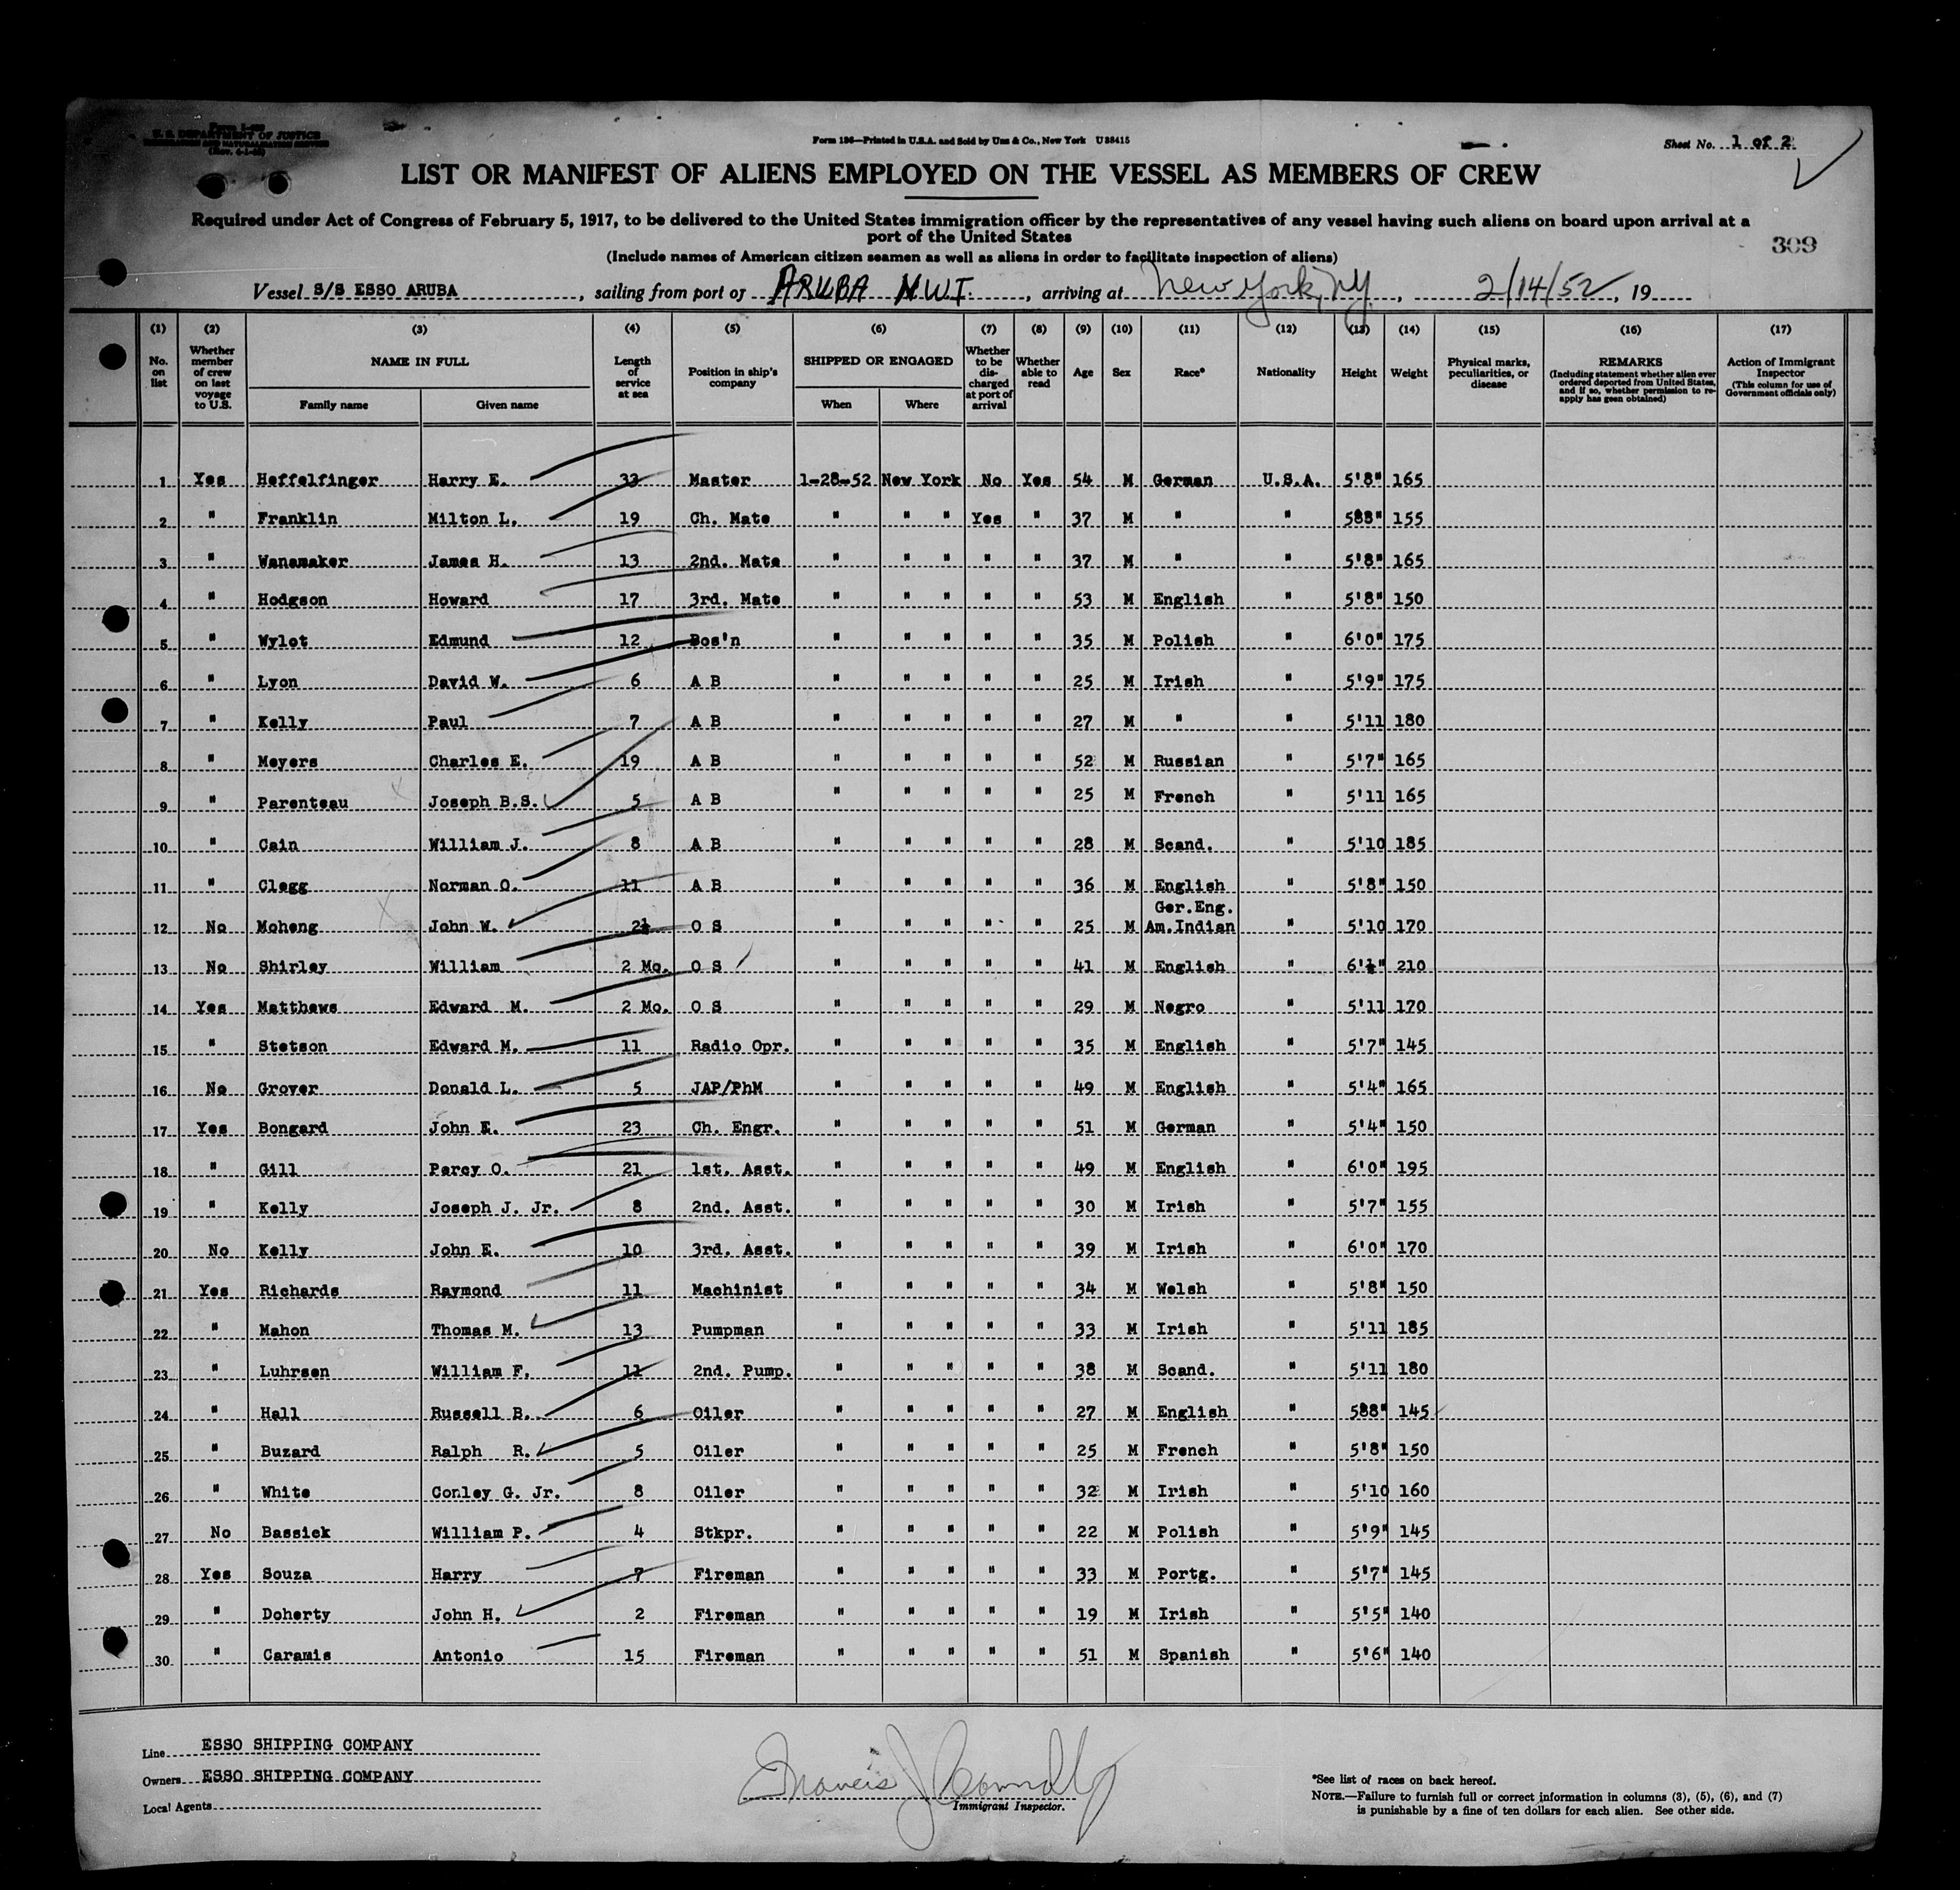 U. S. DEPARTMENT OF JUSTICE
Form 136—Printed in U.S.A. and Sold by Unz & Co., New York U 38415
Sheet No. 1 of 2
LIST OR MANIFEST OF ALIENS EMPLOYED ON THE VESSEL AS MEMBERS OF CREW
Required under Act of Congress of February 5, 1917, to be delivered to the United States immigration officer by the representatives of any vessel having such aliens on board upon arrival at a
port of the United States
309
(Include names of American citizen seamen as well as aliens in order to facilitate inspection of aliens)
Vessel S/S ESSO ARUBA, sailing from port of ARUBA N.W.I., arriving at New York, NY, 2/14/52, 19
(1) (2) (3) (4) (5) (6) (7) (8) (9) (10) (11) (12) (13) (14) (15) (16) (17)
No. on list Whether member of crew on last voyage to U.S. NAME IN FULL Family name Given name Length of service at sea Position in ship's company SHIPPED OR ENGAGED When Where Whether to be discharged at port of arrival Whether able to read Age Sex Race* Nationality Height Weight Physical marks, peculiarities, or disease REMARKS (Including statement whether alien ever ordered deported from United States, and if so, whether permission to re-apply has geen obtained) Action of Immigrant Inspector (This column for use of Government officials only)
1 Yes Heffelfinger Harry E. 33 Master 1-28-52 New York No Yes 54 M German U.S.A. 5'8" 165
2 " Franklin Milton L. 19 Ch. Mate " " " Yes " 37 M " " 588" 155
3 " Wanamaker James H. 13 2nd. Mate " " " " " 37 M " " 5'8" 165
4 " Hodgson Howard 17 3rd. Mate " " " " " 53 M English " 5'8" 150
5 " Wylot Edmund 12 Bos'n " " " " " 35 M Polish " 6'0" 175
6 " Lyon David W. 6 A B " " " " " 25 M Irish " 5'9" 175
7 " Kelly Paul 7 A B " " " " " 27 M " " 5'11 180
8 " Meyers Charles E. 19 A B " " " " " 52 M Russian " 5'7" 165
9 " Parenteau Joseph B.S. 5 A B " " " " " 25 M French " 5'11 165
10 " Cain William J. 8 A B " " " " " 28 M Scand. " 5'10 185
11 " Clegg Norman O. 11 A B " " " " " 36 M English " 5'8" 150
12 No Moheng John W. 2½ O S " " " " " 25 M Ger.Eng. Am.Indian " 5'10 170
13 No Shirley William 2 Mo. O S " " " " " 41 M English " 6'½" 210
14 Yes Matthews Edward M. 2 Mo. O S " " " " " 29 M Negro " 5'11 170
15 " Stetson Edward M. 11 Radio Opr. " " " " " 35 M English " 5'7" 145
16 No Grover Donald L. 5 JAP/PhM " " " " " 49 M English " 5'4" 165
17 Yes Bongard John E. 23 Ch. Engr. " " " " " 51 M German " 5'4" 150
18 " Gill Percy O. 21 1st. Asst. " " " " " 49 M English " 6'0" 195
19 " Kelly Joseph J. Jr. 8 2nd. Asst. " " " " " 30 M Irish " 5'7" 155
20 No Kelly John E. 10 3rd. Asst. " " " " " 39 M Irish " 6'0" 170
21 Yes Richards Raymond 11 Machinist " " " " " 34 M Welsh " 5'8" 150
22 " Mahon Thomas M. 13 Pumpman " " " " " 33 M Irish " 5'11 185
23 " Luhrsen William F. 11 2nd. Pump. " " " " " 38 M Scand. " 5'11 180
24 " Hall Russell B. 6 Oiler " " " " " 27 M English " 588" 145
25 " Buzard Ralph R. 5 Oiler " " " " " 25 M French " 5'8" 150
26 " White Conley G. Jr. 8 Oiler " " " " " 32 M Irish " 5'10 160
27 No Bassick William P. 4 Stkpr. " " " " " 22 M Polish " 5'9" 145
28 Yes Souza Harry 7 Fireman " " " " " 33 M Portg. " 5'7" 145
29 " Doherty John H. 2 Fireman " " " " " 19 M Irish " 5'5" 140
30 " Caramis Antonio 15 Fireman " " " " " 51 M Spanish " 5'6" 140
Line ESSO SHIPPING COMPANY
Owners ESSO SHIPPING COMPANY
Local Agents
Francis J Connolly
Immigrant Inspector.
*See list of races on back hereof.
NOTE.—Failure to furnish full or correct information in columns (3), (5), (6), and (7)
is punishable by a fine of ten dollars for each alien. See other side.